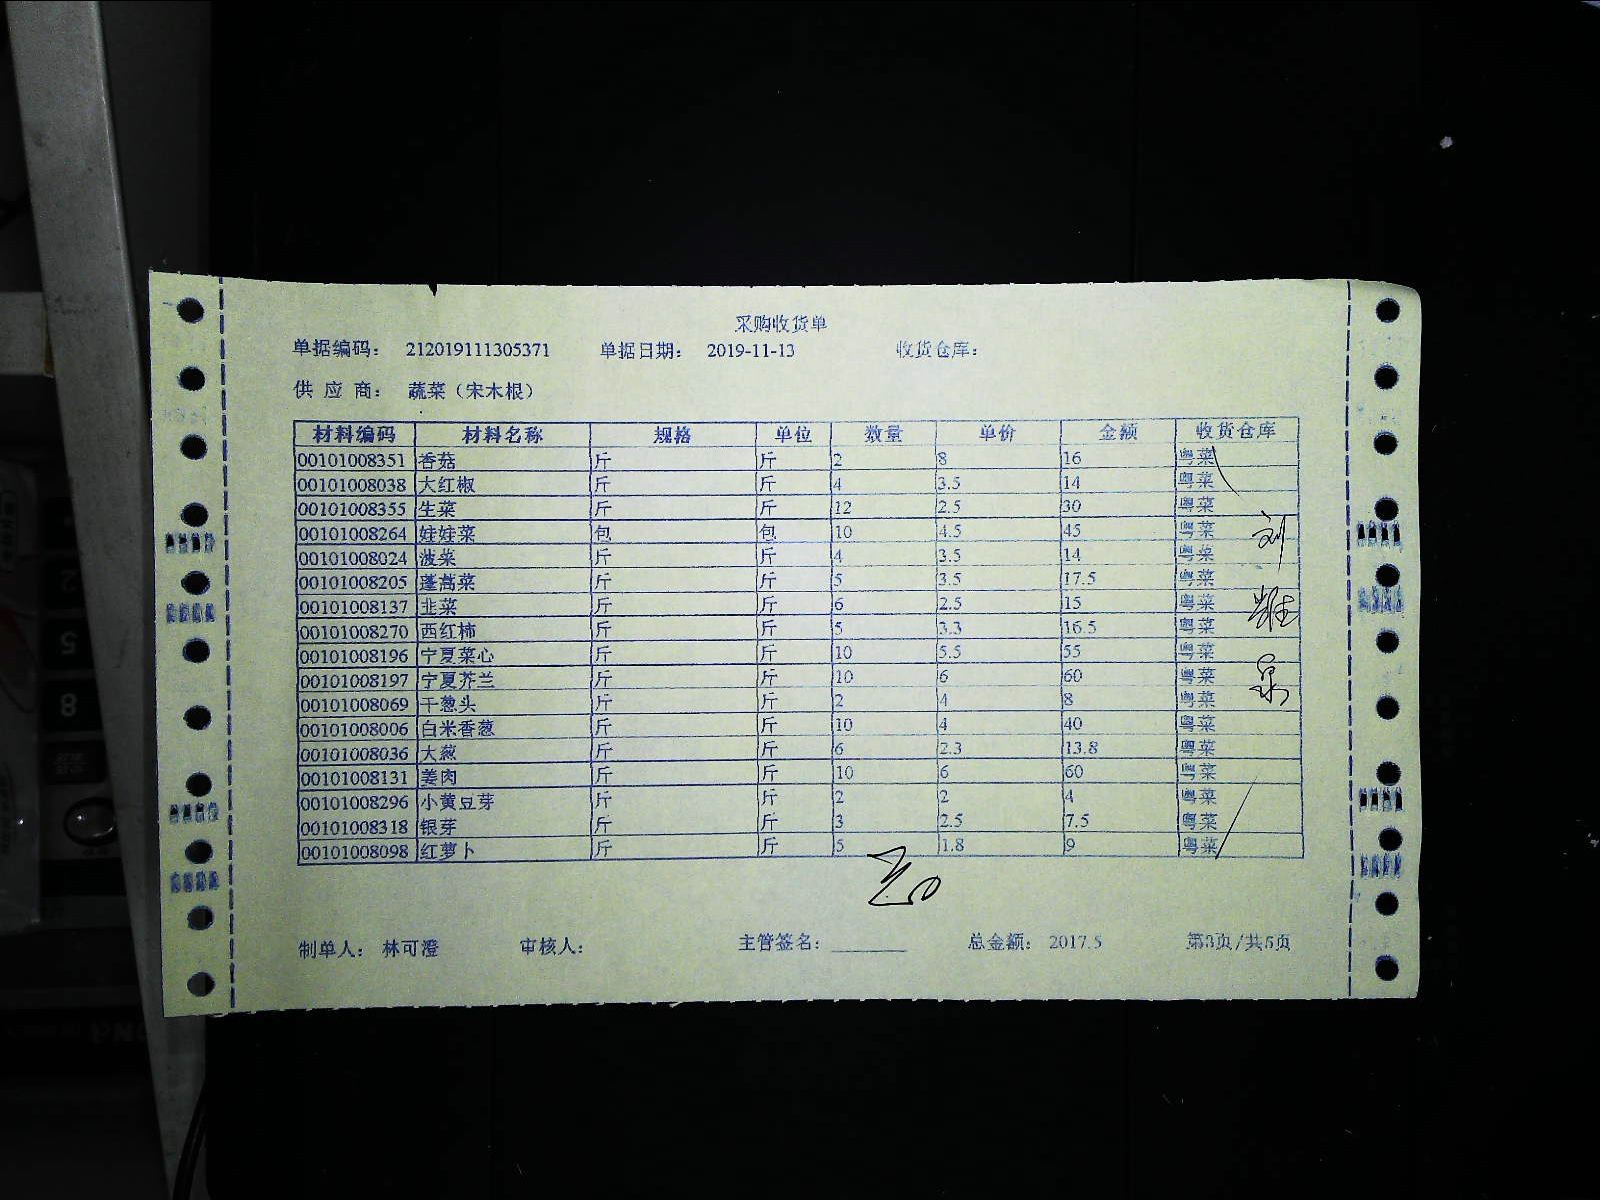 采购收货单
单据编码： 212019111305371 单据日期： 2019-11-13 收货仓库：
供 应 商： 蔬菜（宋木根）
材料编码 材料名称 规格 单位 数量 单价 金额 收货仓库
00101008351 香菇 斤 斤 2 8 16 粤菜
00101008038 大红椒 斤 斤 4 3.5 14 粤菜
00101008355 生菜 斤 斤 12 2.5 30 粤菜
00101008264 娃娃菜 包 包 10 4.5 45 粤菜
00101008024 菠菜 斤 斤 4 3.5 14 粤菜
00101008205 蓬蒿菜 斤 斤 5 3.5 17.5 粤菜
00101008137 韭菜 斤 斤 6 2.5 15 粤菜
00101008270 西红柿 斤 斤 5 3.3 16.5 粤菜
00101008196 宁夏菜心 斤 斤 10 5.5 55 粤菜
00101008197 宁夏芥兰 斤 斤 10 6 60 粤菜
00101008069 干葱头 斤 斤 2 4 8 粤菜
00101008006 白米香葱 斤 斤 10 4 40 粤菜
00101008036 大葱 斤 斤 6 2.3 13.8 粤菜
00101008131 姜肉 斤 斤 10 6 60 粤菜
00101008296 小黄豆芽 斤 斤 2 2 4 粤菜
00101008318 银芽 斤 斤 3 2.5 7.5 粤菜
00101008098 红萝卜 斤 斤 5 1.8 9 粤菜
制单人： 林可澄 审核人： 主管签名： 总金额： 2017.5 第3页/共5页